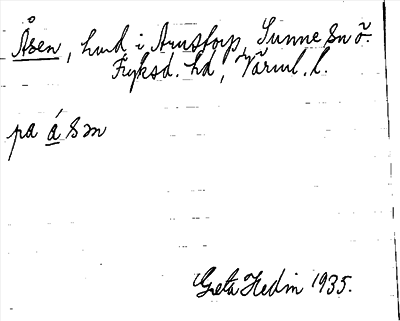 Åsen, hmd i Arnstorp, Sunne sn ö.
Fryksd. hd, Värml. l.
pa åsən
Greta Hedin 1935.